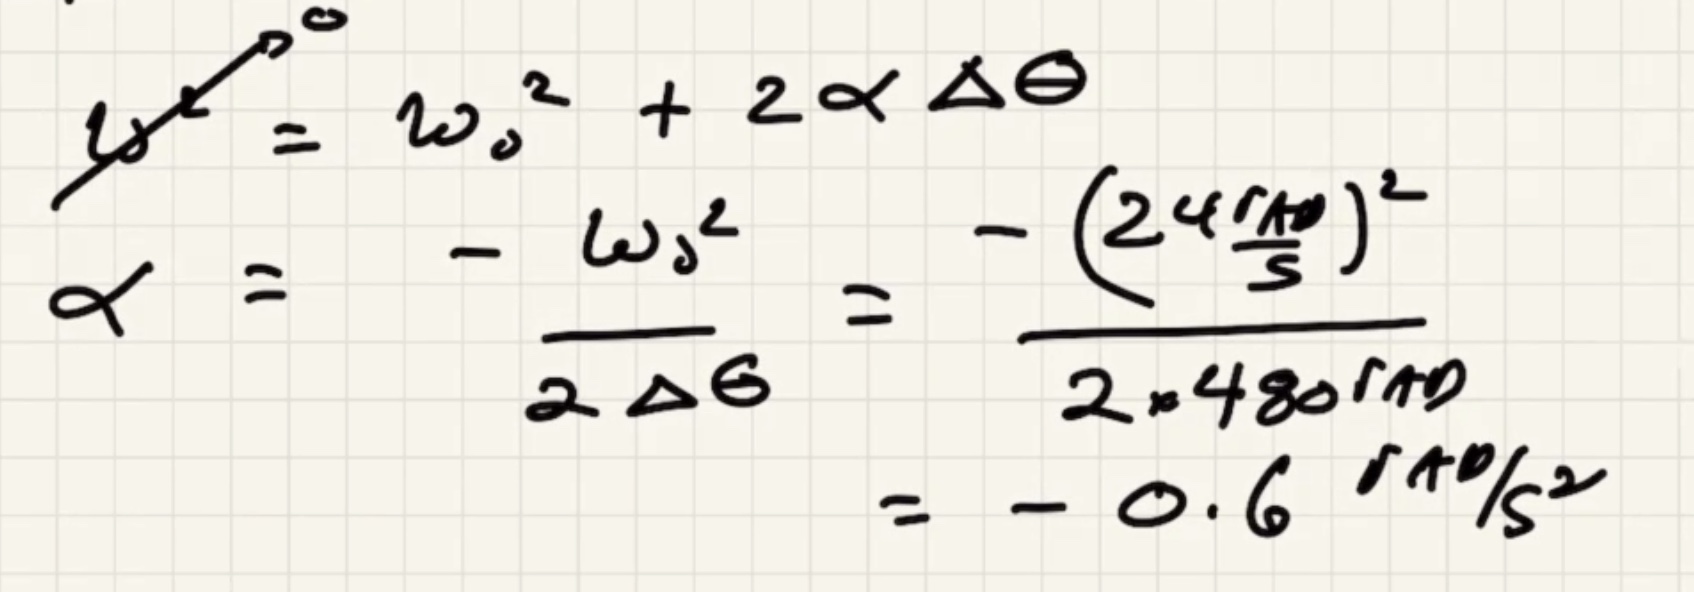 ω² → 0 = ω₀² + 2αΔθ
α = - ω₀² / 2Δθ = - (24 rAD/s)² / 2×480 rAD
= - 0.6 rAD/s²